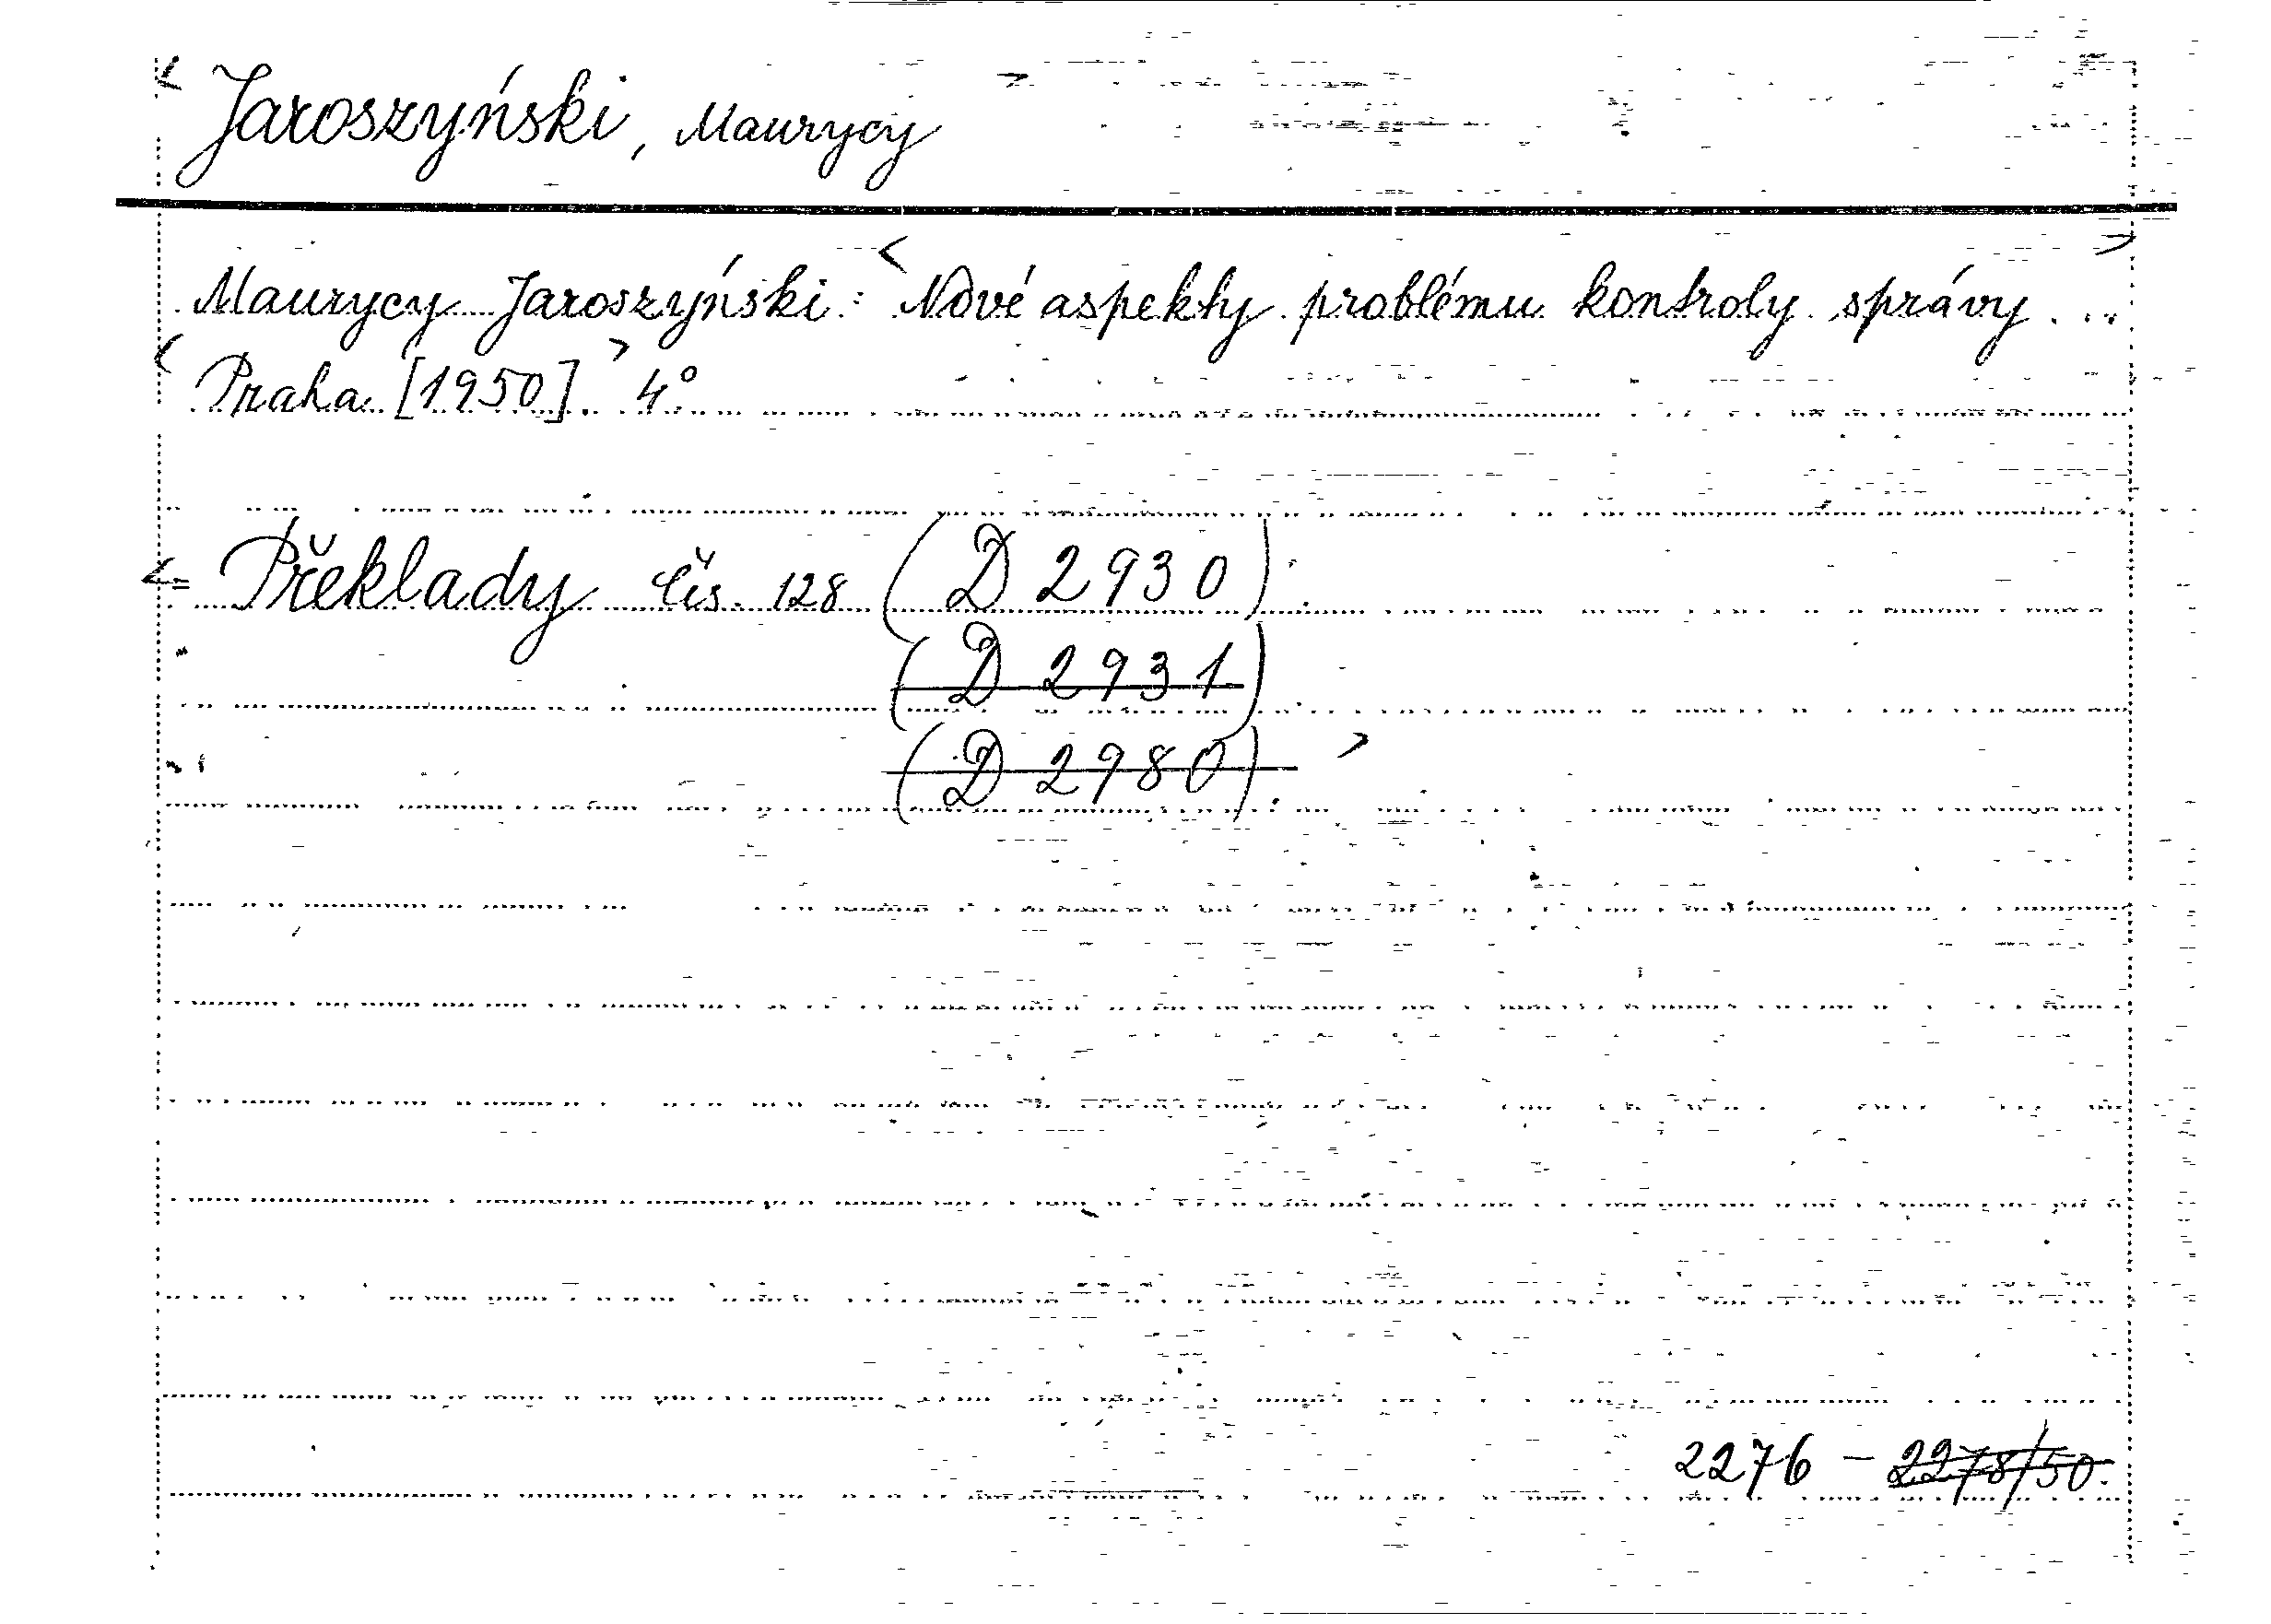 < Jaroszyński, Maurycy >
Maurycy Jaroszyński: < Nové aspekty problému kontroly správy... >
< Praha [1950]. > 4°
<= Překlady čís. 128 (D 2930).
(D 2931)
(D 2980). >
2276 - 2278/50.